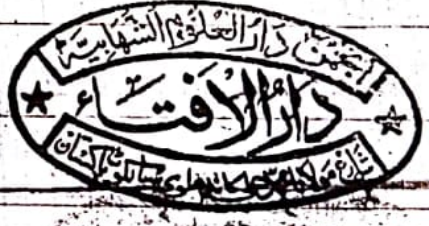 انجمن دارالعلوم الشهابیة
دارالافتاء
شارع مولانا محمد علی کاندهلوی سیالکوٹ پاکستان